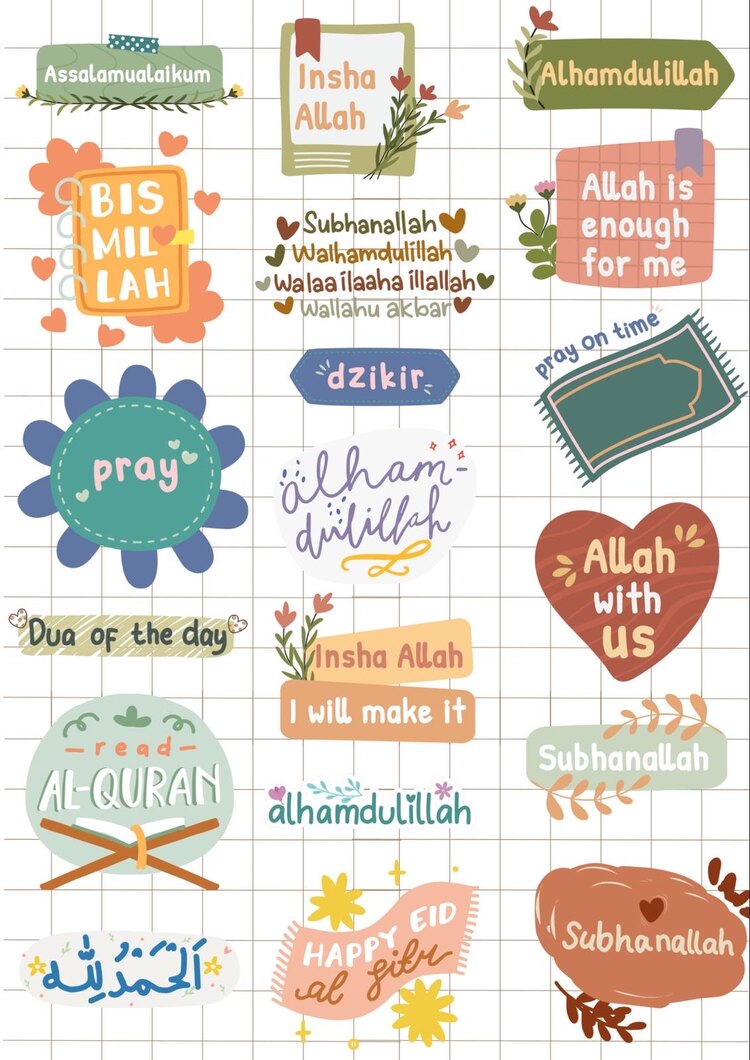 Assalamualaikum
Insha
Allah
Alhamdulillah
BIS
MIL
LAH
Subhanallah
Walhamdulillah
Walaa ilaaha illallah
Wallahu akbar
Allah is
enough
for me
dzikir
pray on time
pray
alham-
dulillah
Allah
with
us
Dua of the day
Insha Allah
I will make it
read
AL-QURAN
Subhanallah
alhamdulillah
اَلْحَمْدُ لِلّٰه
HAPPY EID
al fitr
Subhanallah